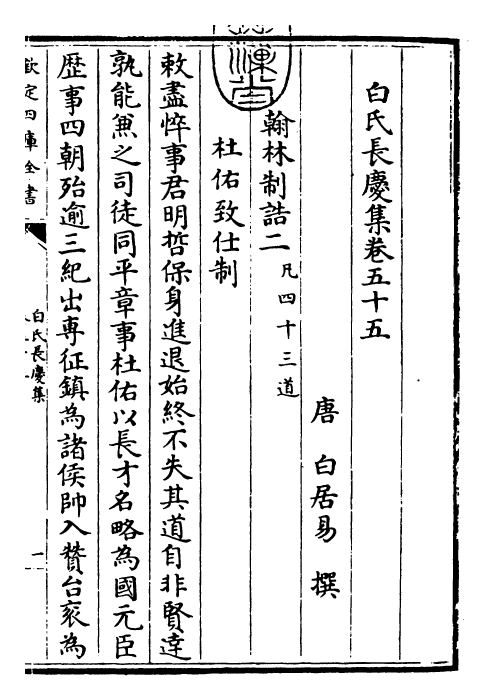 白氏長慶集卷五十五
唐 白居易 撰
翰林制誥二 凡四十三道
杜佑致仕制
敕盡悴事君明哲保身進退始終不失其道自非賢達
孰能兼之司徒同平章事杜佑以長才名略為國元臣
歴事四朝殆逾三紀出專征鎮為諸侯帥入贊台衮為
欽定四庫全書
白氏長慶集
一